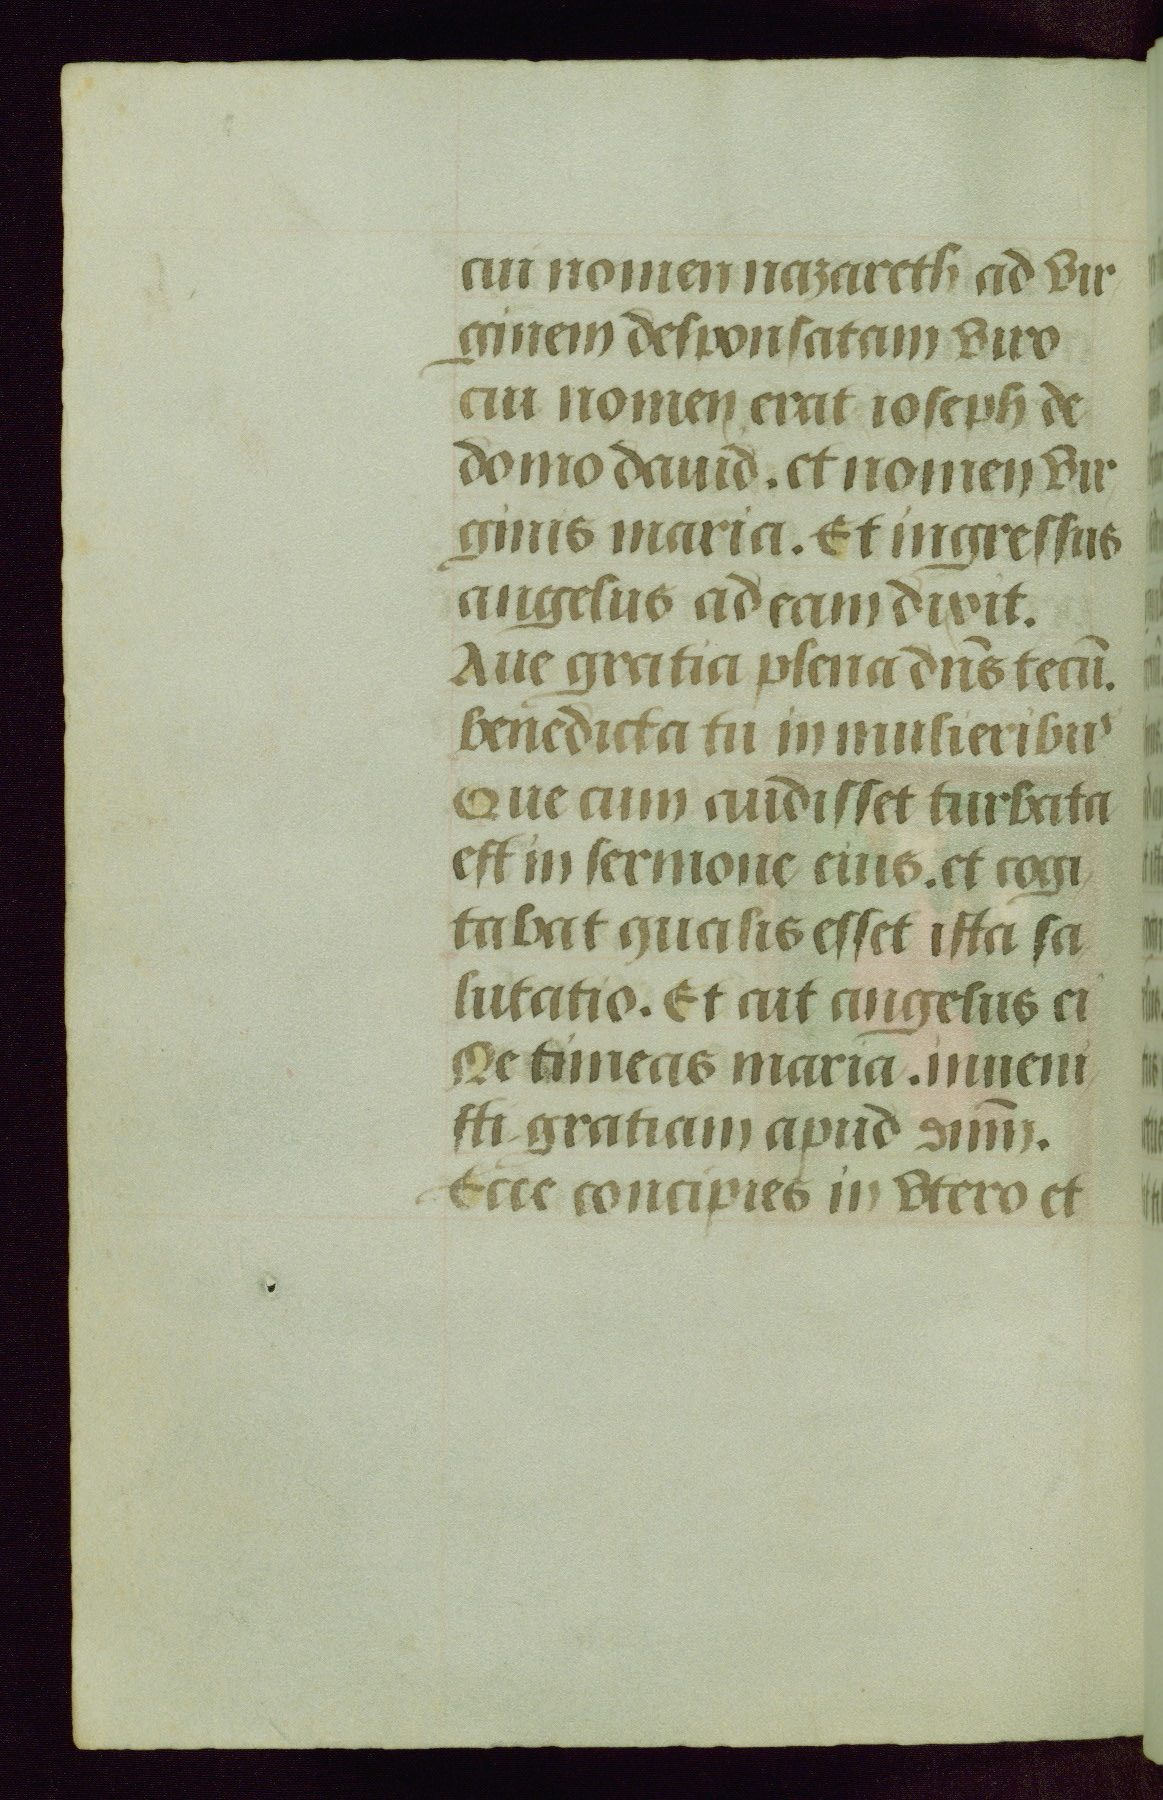 cui nomen nazareth ad vir
ginem desponsatam viro
cui nomen erat ioseph de
domo dauid. et nomen vir
ginis maria. Et ingressus
angelus ad eam dixit.
Aue gratia plena dn̄s tecū.
benedicta tu in mulieribus
Que cum audisset turbata
est in sermone eius. et cogi
tabat qualis esset ista sa
lutatio. Et ait angelus ei
Ne timeas maria. inueni
sti gratiam apud
Ecce concipies in vtero et